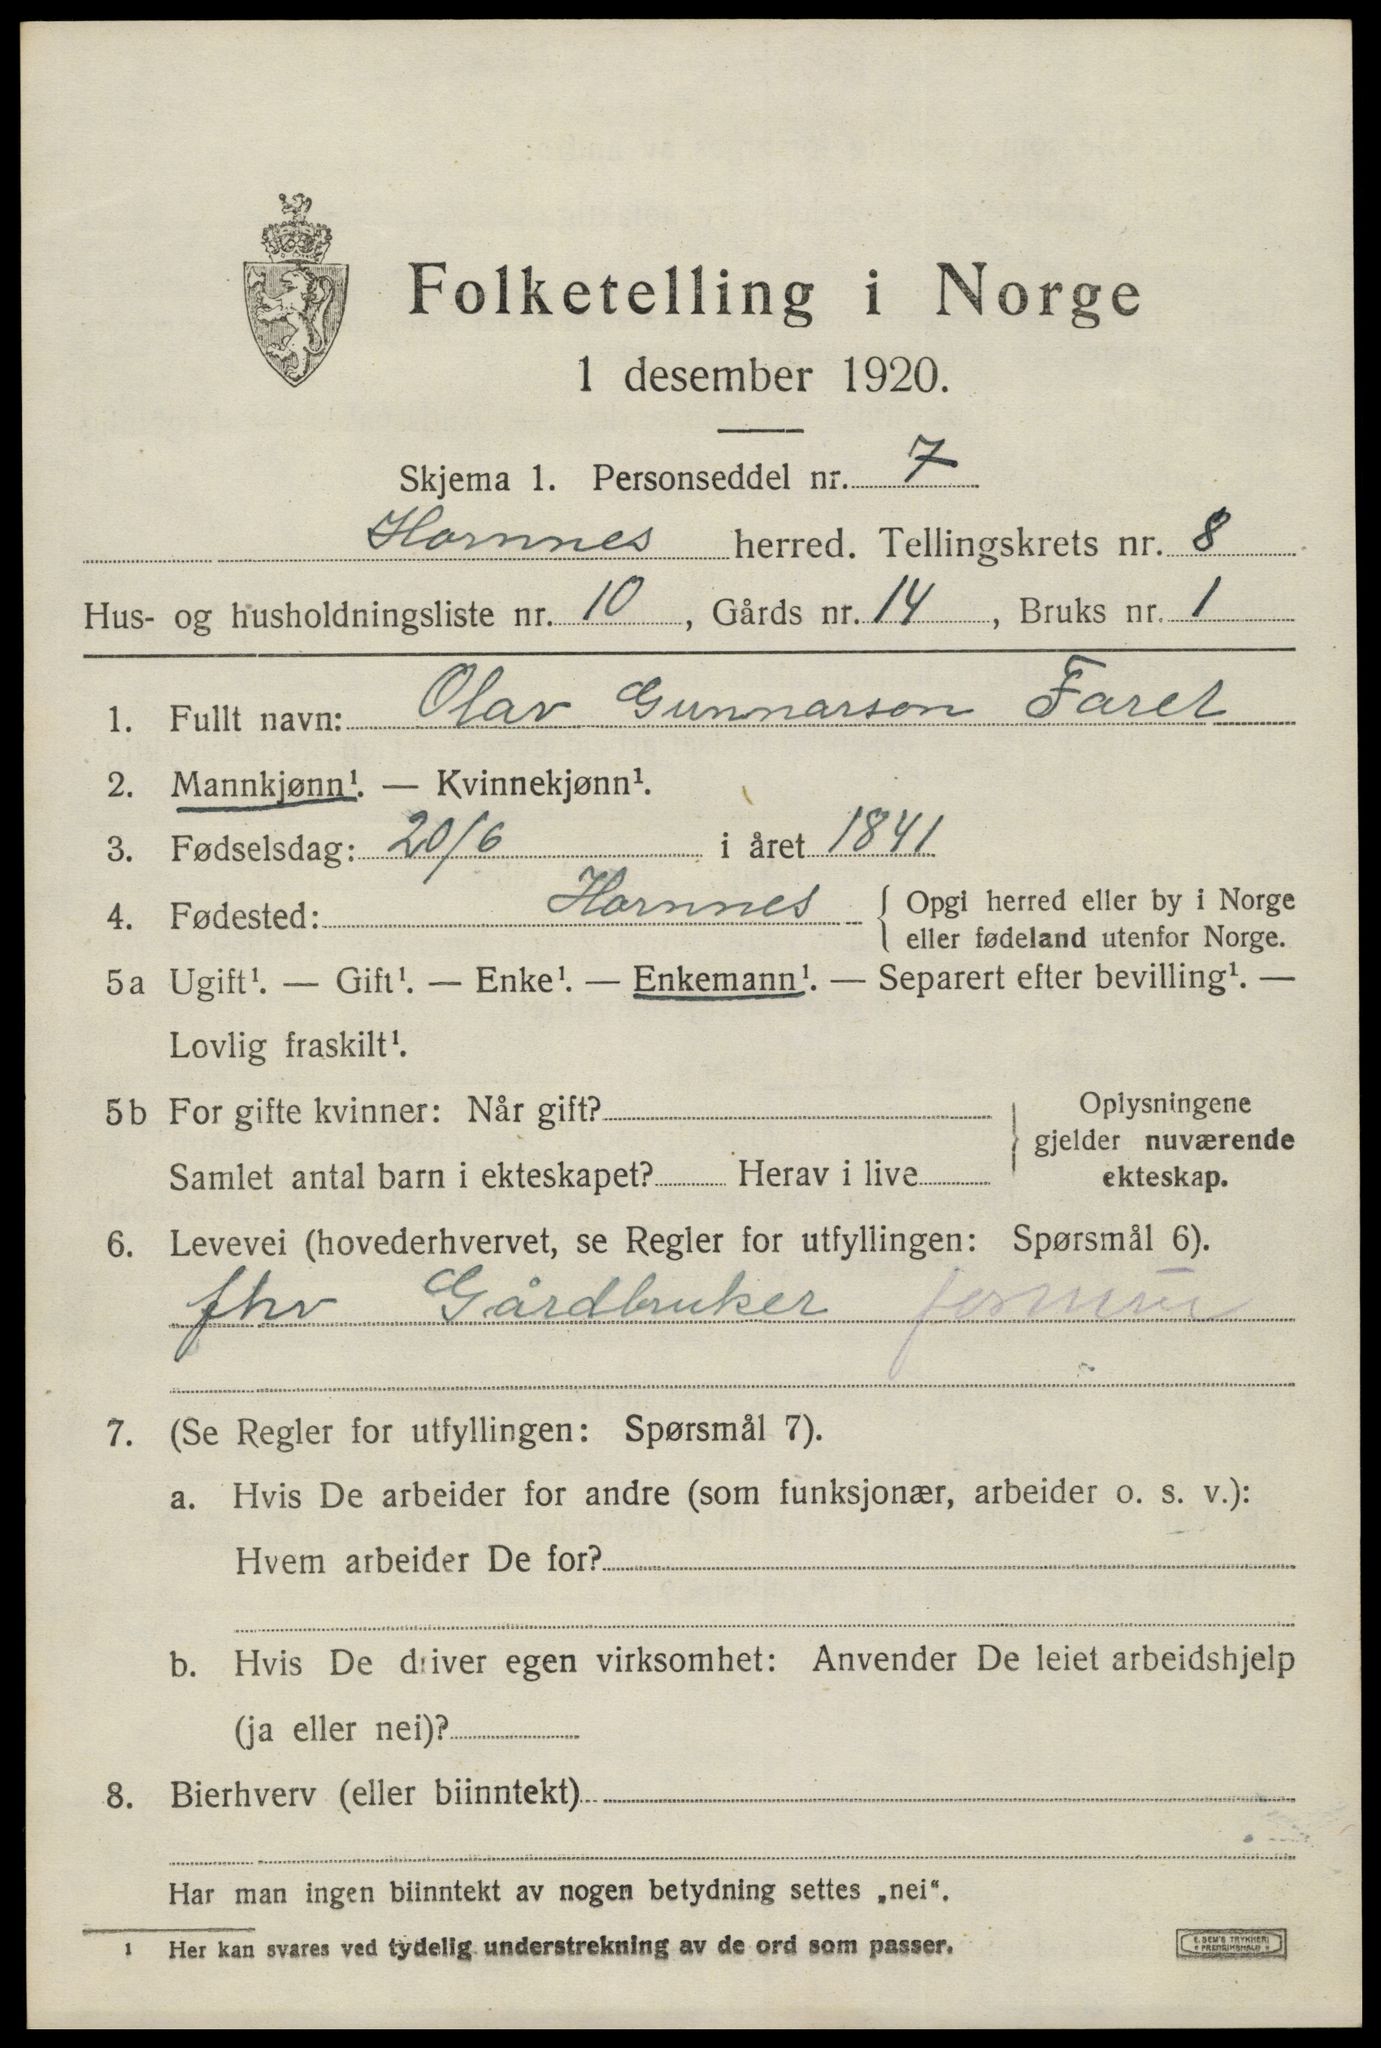 Folketelling i Norge
1 desember 1920.
Skjema 1. Personseddel nr. 7
Hornnes herred. Tellingskrets nr. 8
Hus- og husholdningsliste nr. 10, Gårds nr. 14, Bruks nr. 1
1. Fullt navn: Olav Gunnarson Faret
2. Mannkjønn¹. — Kvinnekjønn¹.
3. Fødselsdag: 20/6 i året 1841
4. Fødested: Hornnes { Opgi herred eller by i Norge
eller fødeland utenfor Norge.
5a Ugift¹. — Gift¹. — Enke¹. — Enkemann¹. — Separert efter bevilling¹. —
Lovlig fraskilt¹.
5b For gifte kvinner: Når gift?
Samlet antal barn i ekteskapet? Herav i live
Oplysningene
gjelder nuværende
ekteskap.
6. Levevei (hovederhvervet, se Regler for utfyllingen: Spørsmål 6).
fhv Gårdbruker
7. (Se Regler for utfyllingen: Spørsmål 7).
a. Hvis De arbeider for andre (som funksjonær, arbeider o. s. v.):
Hvem arbeider De for?
b. Hvis De driver egen virksomhet: Anvender De leiet arbeidshjelp
(ja eller nei)?
8. Bierhverv (eller biinntekt)
Har man ingen biinntekt av nogen betydning settes „nei“.
1 Her kan svares ved tydelig understrekning av de ord som passer.
E. SEM'S TRYKKERI
FREDRIKSHALD